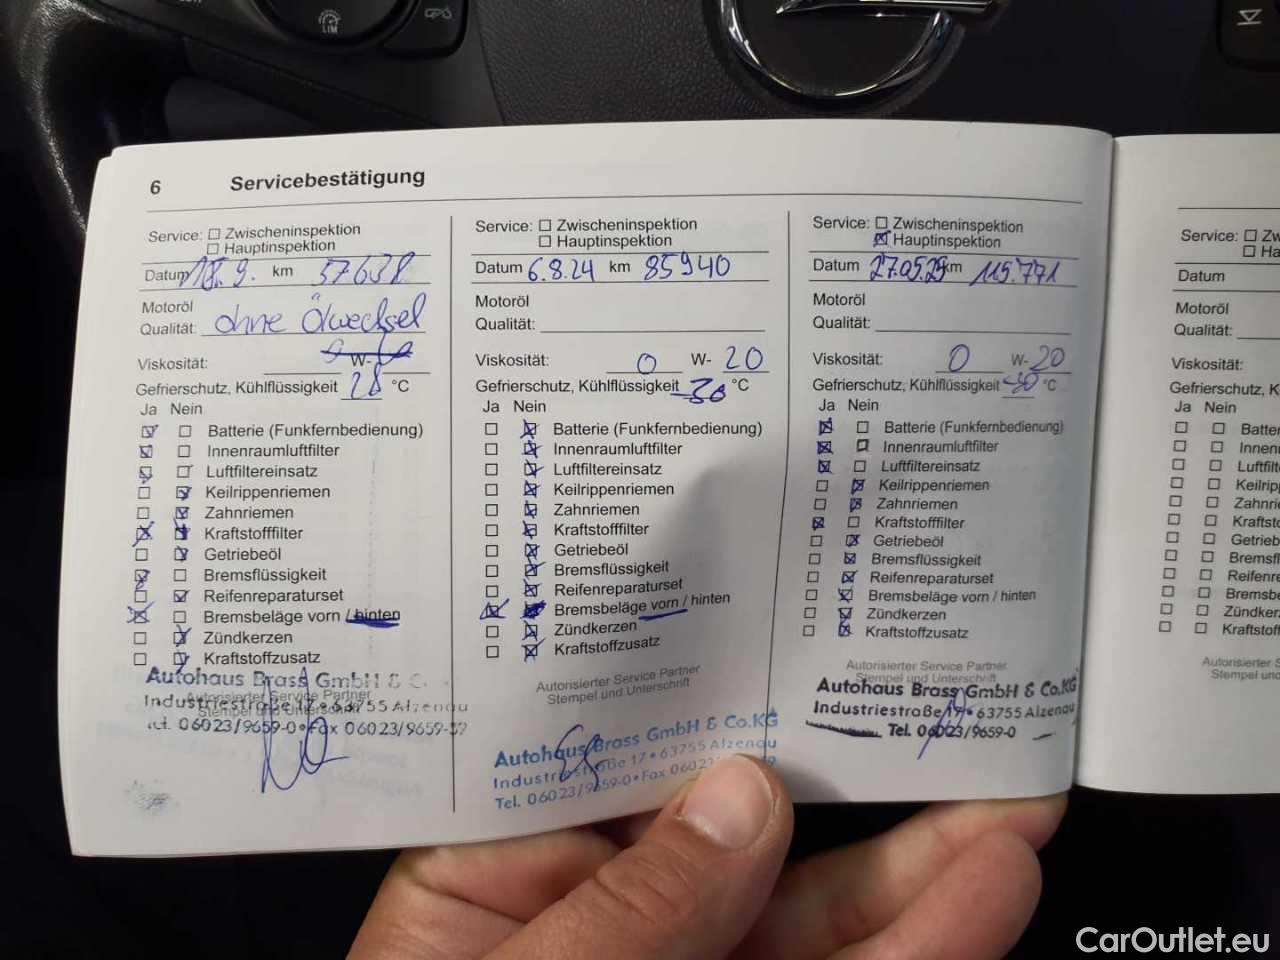 LIM
6 Servicebestätigung
Service: Zwischeninspektion
Hauptinspektion
Datum 18.9. km 57638
Motoröl
Qualität: ohne Ölwechsel
Viskosität: W-
Gefrierschutz, Kühlflüssigkeit 28 °C
Ja Nein
Batterie (Funkfernbedienung)
Innenraumluftfilter
Luftfiltereinsatz
Keilrippenriemen
Zahnriemen
Kraftstofffilter
Getriebeöl
Bremsflüssigkeit
Reifenreparaturset
Bremsbeläge vorn / hinten
Zündkerzen
Kraftstoffzusatz
Autorisierter Service Partner
Stempel und Unterschrift
Autohaus Brass GmbH & C
Industriestraße 17 • 63755 Alzenau
Tel. 06023/9659-0 • Fax 06023/9659-59
Service: Zwischeninspektion
Hauptinspektion
Datum 6.8.24 km 85940
Motoröl
Qualität:
Viskosität: 0 W- 20
Gefrierschutz, Kühlflüssigkeit -38 °C
Ja Nein
Batterie (Funkfernbedienung)
Innenraumluftfilter
Luftfiltereinsatz
Keilrippenriemen
Zahnriemen
Kraftstofffilter
Getriebeöl
Bremsflüssigkeit
Reifenreparaturset
Bremsbeläge vorn / hinten
Zündkerzen
Kraftstoffzusatz
Autorisierter Service Partner
Stempel und Unterschrift
Autohaus Brass GmbH & Co.KG
Industriestraße 17 • 63755 Alzenau
Tel. 06023/9659-0 • Fax 06023/ 59
Service: Zwischeninspektion
Hauptinspektion
Datum 27.05.25 km 115.771
Motoröl
Qualität:
Viskosität: 0 W- 20
Gefrierschutz, Kühlflüssigkeit -30 °C
Ja Nein
Batterie (Funkfernbedienung)
Innenraumluftfilter
Luftfiltereinsatz
Keilrippenriemen
Zahnriemen
Kraftstofffilter
Getriebeöl
Bremsflüssigkeit
Reifenreparaturset
Bremsbeläge vorn / hinten
Zündkerzen
Kraftstoffzusatz
Autorisierter Service Partner
Stempel und Unterschrift
Autohaus Brass GmbH & Co.KG
Industriestraße 17 • 63755 Alzenau
Tel. 06023/9659-0
Service: Zw
Ha
Datum
Motoröl
Qualität:
Viskosität:
Gefrierschutz, K
Ja Nein
Batter
Innen
Luftfilt
Keilrip
Zahnri
Kraftst
Getrieb
Bremsfl
Reifenr
Bremsbe
Zündker
Kraftstof
Autorisierter S
Stempel und
CarOutlet.eu